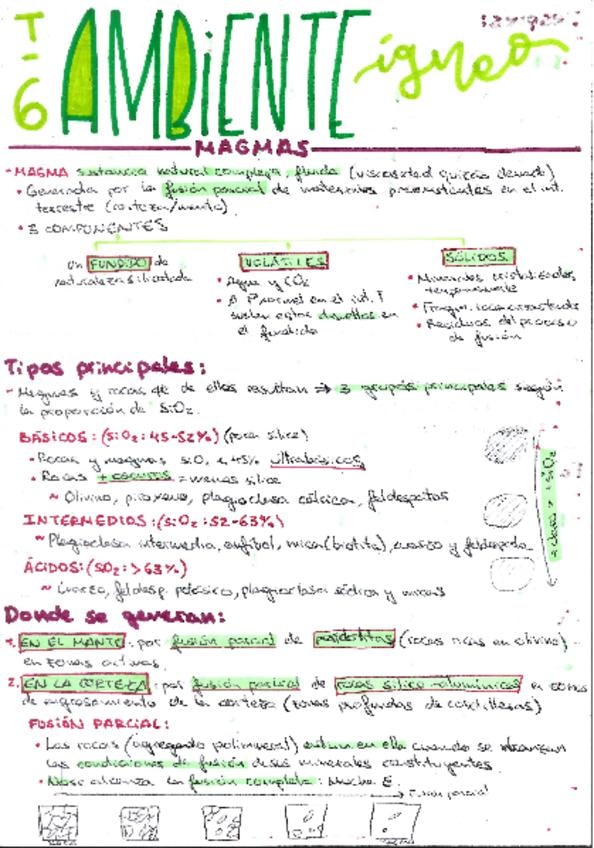 T-6 AMBIENTE ígneo
MAGMAS
- MAGMA sustancia natural compleja, fluida (viscosidad quizás elevada)
• Generada por la fusión parcial de materiales preexistentes en el int.
terrestre (corteza/manto)
• 3 COMPONENTES
Un FUNDIDO de
naturaleza silicatada
VOLÁTILES
• Agua y CO2
• A P normal en el int. T
suelen estar disueltos en
el fundido
SÓLIDOS
• Minerales cristalizados
• Fragm. roca arrastrados
• Residuos del proceso
de fusión
Tipos principales:
- Magmas y rocas de ellos resultan ⇒ 3 grupos principales según
la proporción de SiO2.
BÁSICOS: (SiO2: 45-52%) (poca sílice)
• Rocas y magmas SiO2 < 45% ultrabásicos
• Rocas + oscuras = menos sílice
~ Olivino, piroxeno, plagioclasa cálcica, feldespatos
INTERMEDIOS: (SiO2: 52-63%)
~ Plagioclasa intermedia, anfíbol, mica (biotita), cuarzo y feldespato
ÁCIDOS: (SiO2: >63%)
~ Cuarzo, feldesp. potásico, plagioclasa sódica y micas
+ claros = + SiO2
Donde se generan:
1. EN EL MANTO: por fusión parcial de peridotitas (rocas ricas en olivino)
en zonas activas.
2. EN LA CORTEZA: por fusión parcial de rocas silico-alumínicas en zonas
de engrosamiento de la corteza (zonas profundas de cordilleras)
FUSIÓN PARCIAL:
• Las rocas (agregado polimineral) entran en ella cuando se alcanzan
las condiciones de fusión de sus minerales constituyentes.
• No se alcanza la fusión completa: Mucha E.
Fusión parcial